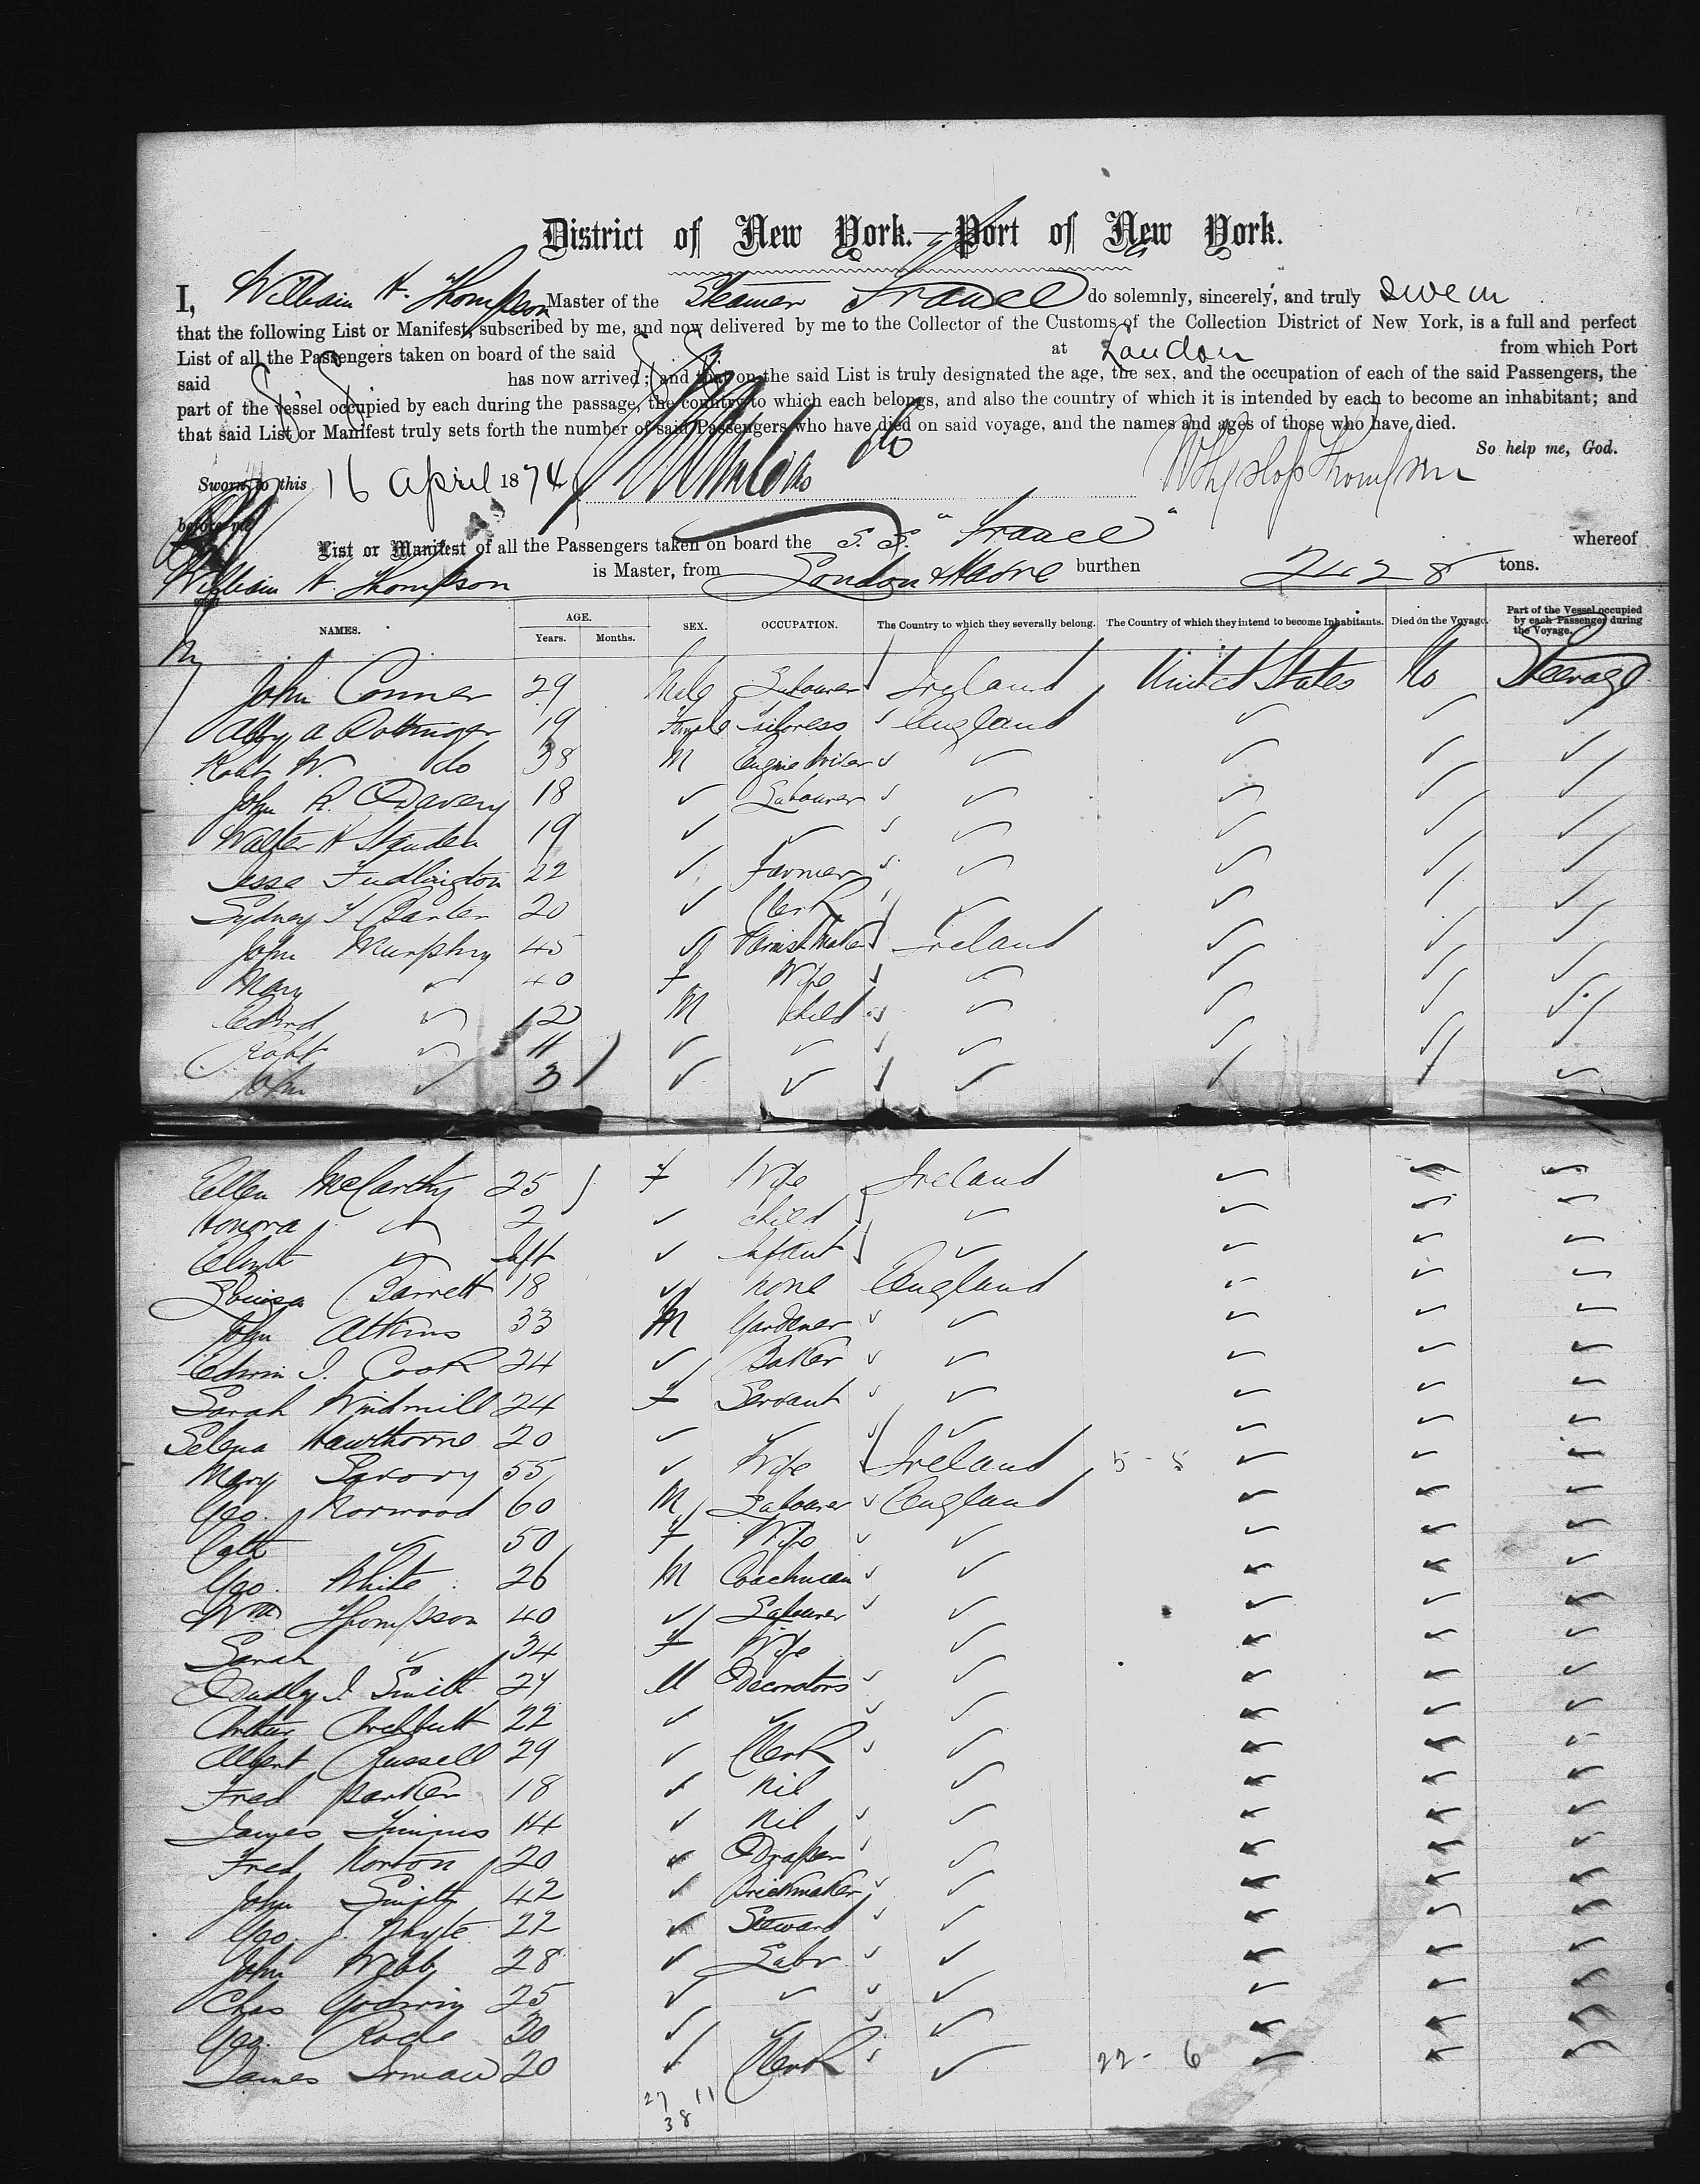 District of New York.—Port of New York.
I, William H. Thompson Master of the Steamer France do solemnly, sincerely, and truly swear
that the following List or Manifest, subscribed by me, and now delivered by me to the Collector of the Customs of the Collection District of New York, is a full and perfect
List of all the Passengers taken on board of the said at London from which Port
said has now arrived; and that on the said List is truly designated the age, the sex, and the occupation of each of the said Passengers, the
part of the vessel occupied by each during the passage, the country to which each belongs, and also the country of which it is intended by each to become an inhabitant; and
that said List or Manifest truly sets forth the number of said Passengers who have died on said voyage, and the names and ages of those who have died.
So help me, God.
Sworn to this 16 April 1874
before me
List or Manifest of all the Passengers taken on board the S.S. "France" whereof
William H. Thompson is Master, from London & Havre burthen 2428 tons.
NAMES. AGE. Years. Months. SEX. OCCUPATION. The Country to which they severally belong. The Country of which they intend to become Inhabitants. Died on the Voyage. Part of the Vessel occupied by each Passenger during the Voyage.
John Conner 29 Male Labourer Ireland United States No Steerage
19 Female England ✓ ✓ ✓
Robt W. do 38 M Engine Driver ✓ ✓ ✓ ✓ ✓
John R. 18 ✓ Labourer ✓ ✓ ✓ ✓ ✓
Walter H 19 ✓ ✓ ✓ ✓ ✓ ✓ ✓
Jesse Fudlington 22 ✓ Farmer ✓ ✓ ✓ ✓ ✓
Sydney 20 ✓ Clerk ✓ ✓ ✓ ✓
John Murphy 45 M Ireland ✓ ✓ ✓
Mary ✓ 40 F Wife ✓ ✓ ✓ ✓ ✓
Edwd ✓ 12 M Child ✓ ✓ ✓ ✓ ✓
Robt ✓ 11 ✓ ✓ ✓ ✓ ✓ ✓ ✓
John ✓ 3 ✓ ✓ ✓ ✓ ✓ ✓
Ellen McCarthy 25 F Wife Ireland ✓ ✓ ✓
Honora ✓ 2 ✓ child ✓ ✓ ✓ ✓
✓ Inft ✓ Infant ✓ ✓ ✓ ✓
Louisa Barrett 18 ✓ none England ✓ ✓ ✓
John Atkins 33 M Gardener ✓ ✓ ✓ ✓ ✓
Edwin J. Cook 24 ✓ Baker ✓ ✓ ✓ ✓ ✓
Sarah Windmill 24 F Servant ✓ ✓ ✓ ✓ ✓
Selena Hawthorne 20 ✓ ✓ ✓ ✓ ✓ ✓
Mary Savory 55 ✓ Wife Ireland 5 - 5 ✓ ✓ ✓
Geo. Norwood 60 M Labourer ✓ England ✓ ✓ ✓
Cath ✓ 50 F Wife ✓ ✓ ✓ ✓ ✓
Geo. White 26 M Coachman ✓ ✓ ✓ ✓ ✓
Wm Thompson 40 ✓ Labourer ✓ ✓ ✓ ✓ ✓
Sarah ✓ 34 F Wife ✓ ✓ ✓ ✓
Dudley J. Smith 24 M Decorators ✓ ✓ ✓ ✓ ✓
Arthur Archbutt 22 ✓ ✓ ✓ ✓ ✓ ✓ ✓
Albert Russell 29 ✓ Clerk ✓ ✓ ✓ ✓ ✓
Fred Parker 18 ✓ Nil ✓ ✓ ✓ ✓
James 14 ✓ Nil ✓ ✓ ✓ ✓ ✓
Fred Norton 20 ✓ Draper ✓ ✓ ✓ ✓ ✓
John Smith 42 ✓ Brickmaker ✓ ✓ ✓ ✓ ✓
Geo. J. Whyte 22 ✓ Steward ✓ ✓ ✓ ✓ ✓
John Webb 28 ✓ Labr ✓ ✓ ✓ ✓ ✓
Chas Godwin 25 ✓ ✓ ✓ ✓ ✓ ✓ ✓
Geo. 30 ✓ ✓ ✓ ✓ ✓ ✓ ✓
James 20 ✓ Clerk ✓ ✓ 22 - 6 ✓ ✓ ✓
27 11
38